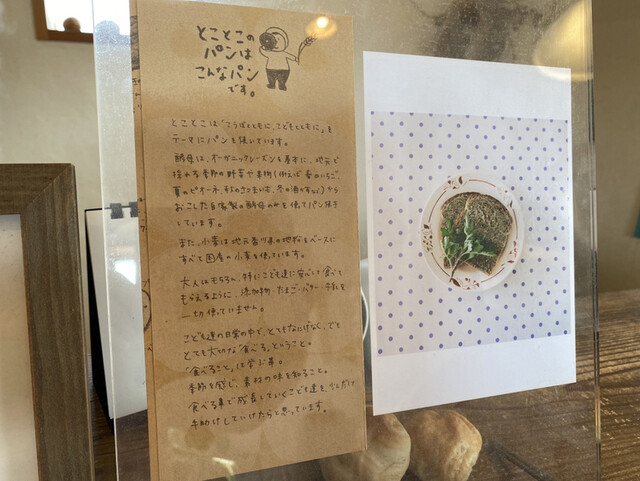 とことこの
パンは
こんなパン
です。
とことこは「こうぼとともに、こどもとともに」を
テーマにパンを焼いています。
酵母は、オーガニックレーズンを基本に、地元で
採れる季節の野菜や果物(例えば 春のいちご、
夏のピオーネ、秋のさつまいも、冬の酒かすなど)から
おこした自家製の酵母のみを使てパン作り
しています。
また、小麦は地元香川県の地粉をベースに
すべて国産の小麦を使ています。
大人はもちろん、特にこども達に安心して食べて
もらえるように、添加物・たまご・バター・牛乳を
一切使ていません。
こども達の日常の中で、とてもなにげなく、でも
とても大切な「食べる」ということ。
「食べること」は学ぶ事。
季節を感じ、素材の味を知ること。
食べる事で成長していくこども達を少しだけ
手助けしていけたらと思っています。